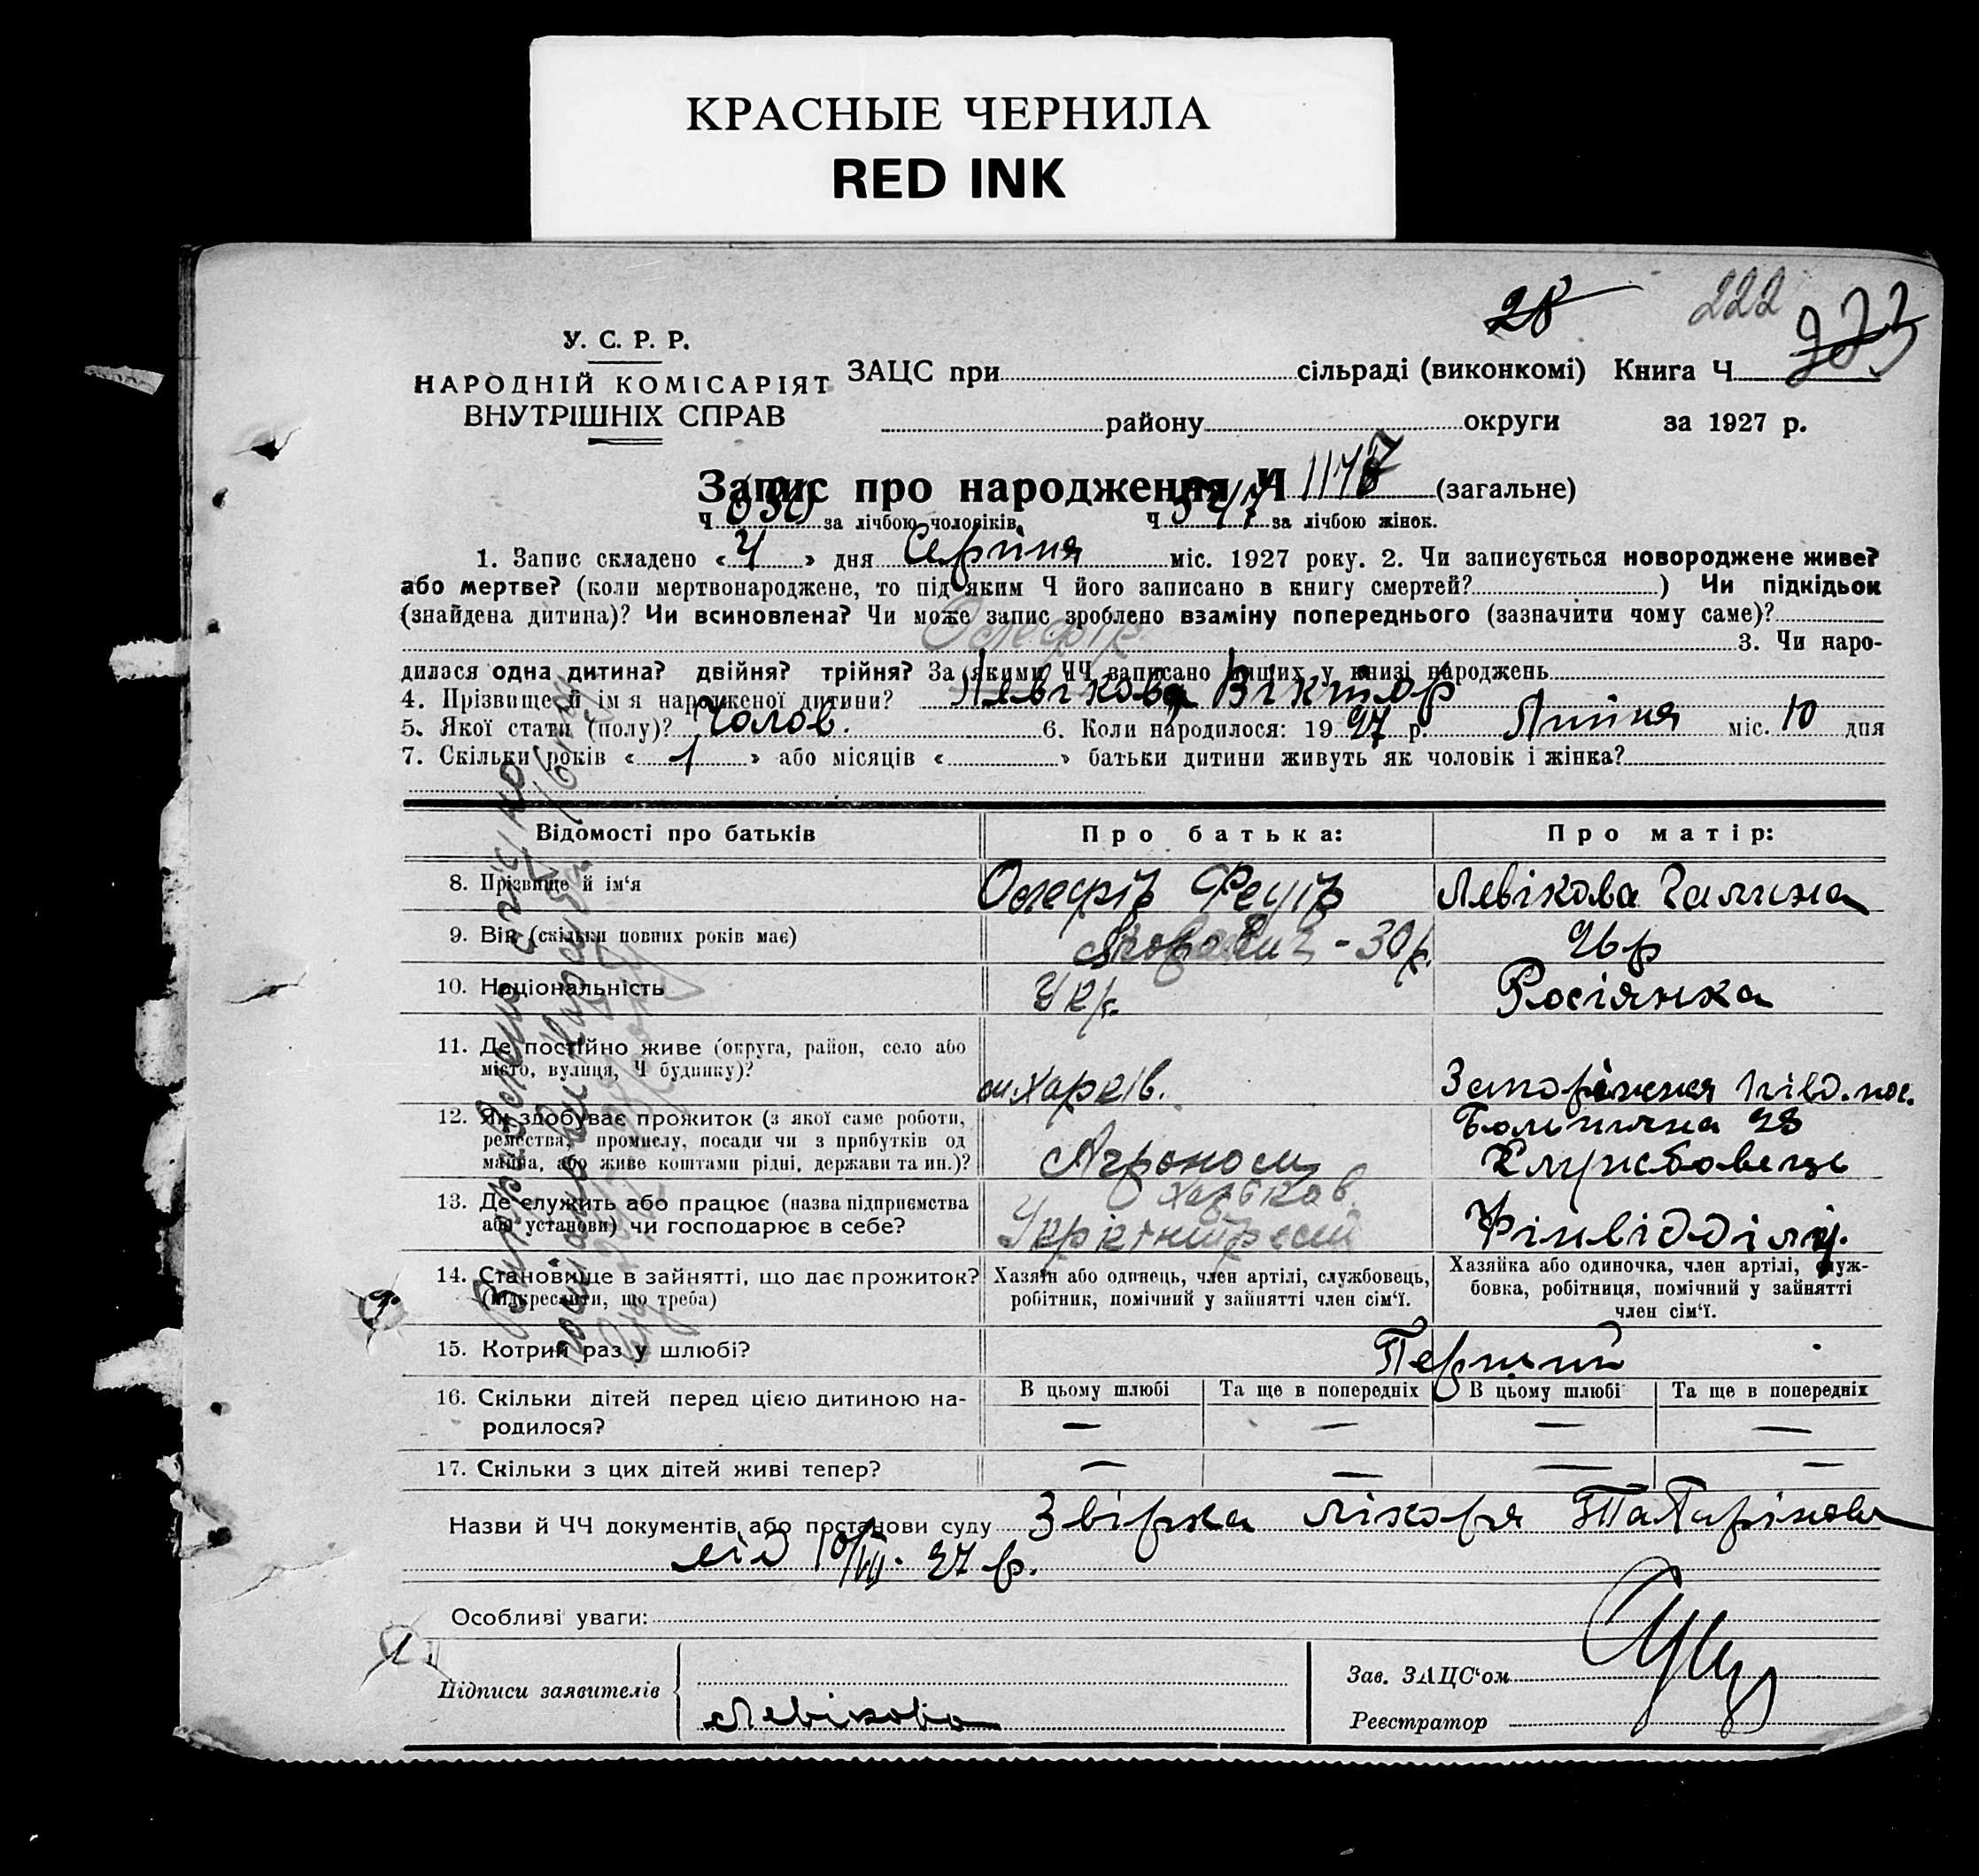 КРАСНЫЕ ЧЕРНИЛА
RED INK
28 222
У. С. Р. Р.
НАРОДНІЙ КОМІСАРІЯТ
ВНУТРІШНІХ СПРАВ
ЗАЦС при сільраді (виконкомі) Книга Ч
району округи за 1927 р.
Запис про народження Ч 1147 (загальне)
Ч 630 за лічбою чоловіків. Ч 547 за лічбою жінок.
1. Запис складено «4» дня Серпня міс. 1927 року. 2. Чи записується новороджене живе?
або мертве? (коли мертвонароджене, то під яким Ч його записано в книгу смертей? ) Чи підкідьок
(знайдена дитина)? Чи всиновлена? Чи може запис зроблено взаміну попереднього (зазначити чому саме)?
3. Чи наро-
дилася одна дитина? двійня? трійня? За якими ЧЧ записано инших у книзі народжень
4. Прізвище й ім'я народженої дитини? Левікова Віктор
5. Якої стати (полу)? Чолов. 6. Коли народилося: 1927 р. Липня міс. 10 дня
7. Скільки років «1» або місяців « » батьки дитини живуть як чоловік і жінка?
Відомості про батьків Про батька: Про матір:
8. Прізвище й ім'я Левікова Галина
9. Вік (скільки повних років має) - 30 р. 26 р
10. Національність Укр. Росіянка
11. Де постійно живе (округа, район, село або
місто, вулиця, Ч будинку)? м. Харків. Запоріжжя
12. Як здобуває прожиток (з якої саме роботи,
ремества, промислу, посади чи з прибутків од
майна, або живе коштами рідні, держави та ин.)? Агроном Службовець
13. Де служить або працює (назва підприємства
або установи) чи господарює в себе? Фінвідділу.
14. Становище в зайнятті, що дає прожиток?
(підкреслити, що треба)
Хазяїн або одинець, член артілі, службовець,
робітник, помічний у зайнятті член сім'ї.
Хазяйка або одиночка, член артілі, служ-
бовка, робітниця, помічний у зайнятті
член сім'ї.
15. Котрий раз у шлюбі? Перший
16. Скільки дітей перед цією дитиною на-
родилося?
В цьому шлюбі Та ще в попередніх В цьому шлюбі Та ще в попередніх
— — — —
17. Скільки з цих дітей живі тепер? — — — —
Назви й ЧЧ документів або постанови суду Звірка лікаря Татарінова
від 10/VII. 27 р.
Особливі уваги:
Підписи заявителів Левікова
Зав. ЗАЦС'ом
Реєстратор